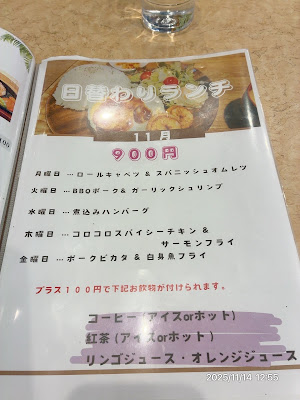 日替わりランチ
11月
900円
月曜日 … ロールキャベツ & スパニッシュオムレツ
火曜日 … BBQポーク& ガーリックシュリンプ
水曜日 … 煮込みハンバーグ
木曜日 … コロコロスパイシーチキン &
サーモンフライ
金曜日 … ポークピカタ & 白身魚フライ
プラス100円で下記お飲物が付けられます。
コーヒー (アイスorホット)
紅茶 (アイスorホット)
リンゴジュース・オレンジジュース
2025/11/14 12:55